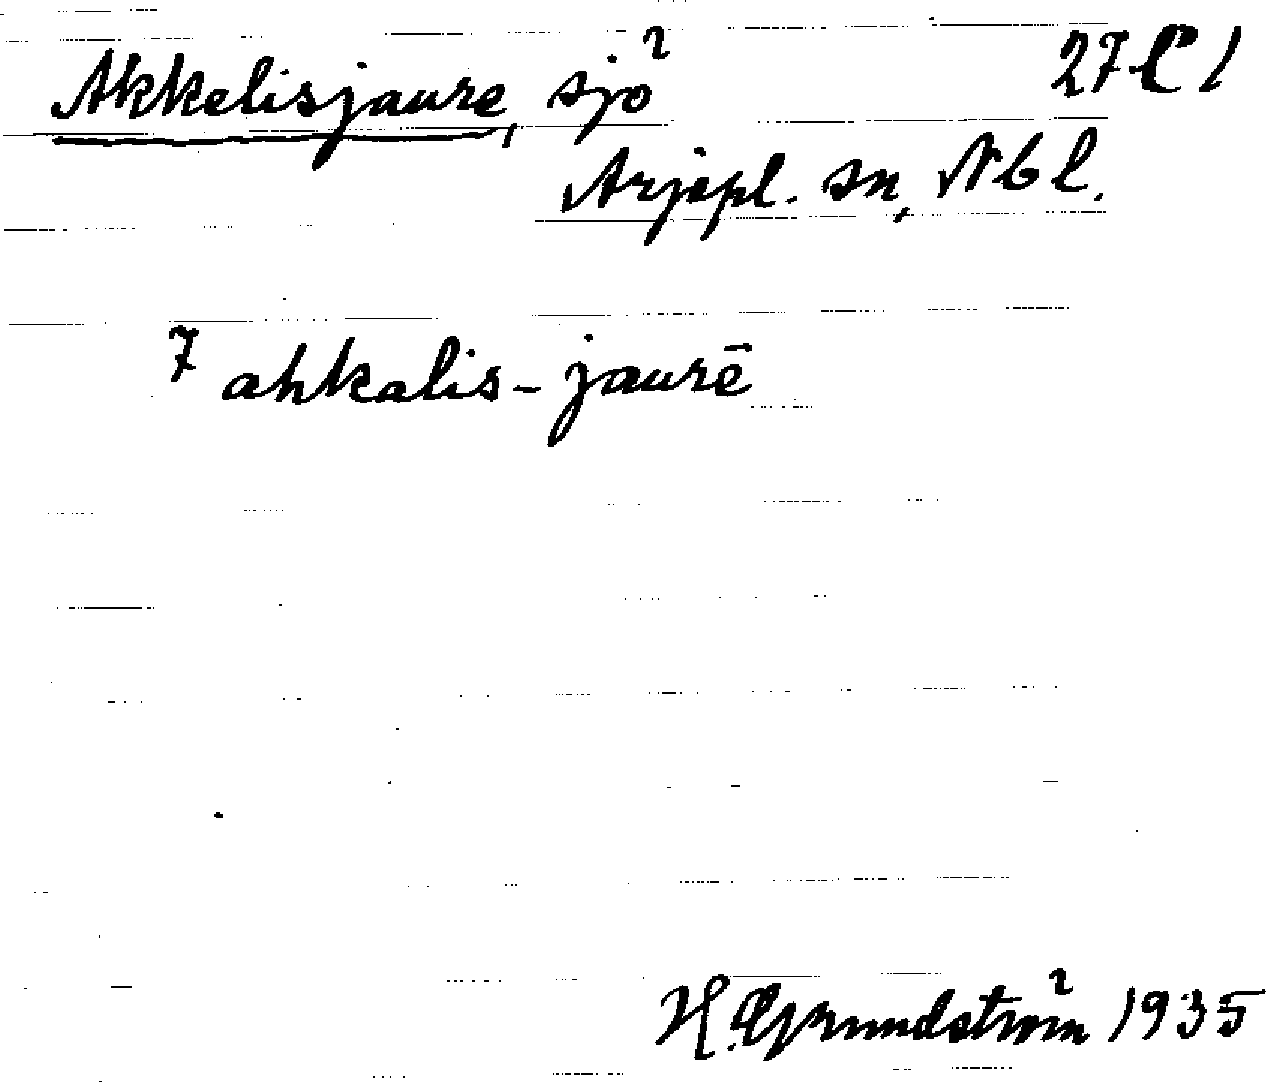 Akkelisjaure, sjö 27 C 1
Arjepl. sn, Nbl.
7 ahkalis-jaurē
H. Grundström 1935